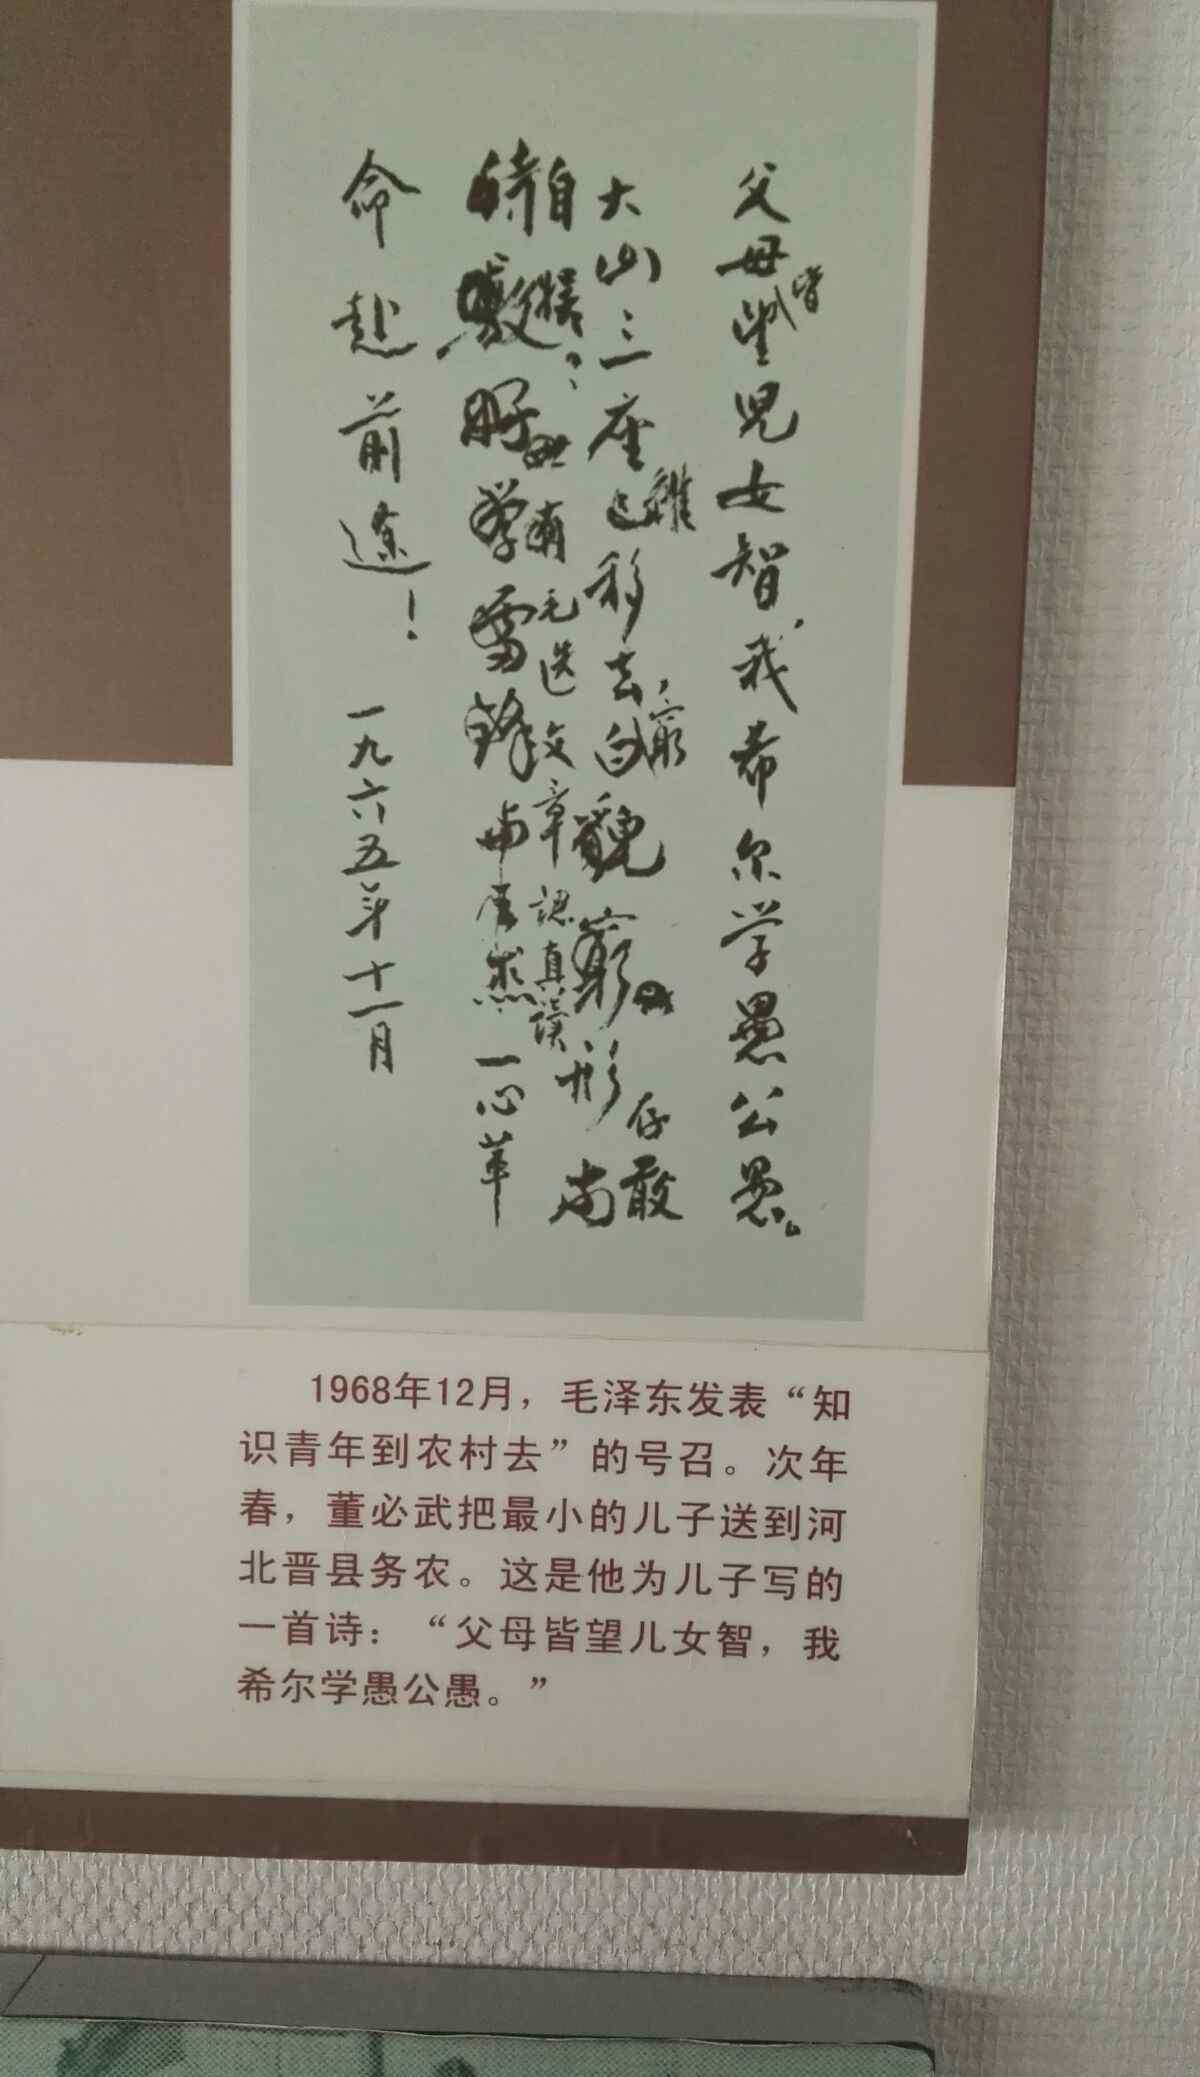 父母皆望兒女智，我希尔学愚公愚。
大山三座已雖移去，
窮白
敢
自
毛选文章認真读
学雷鋒
一心革
命赴前途！一九六五年十一月
1968年12月，毛泽东发表“知
识青年到农村去”的号召。次年
春，董必武把最小的儿子送到河
北晋县务农。这是他为儿子写的
一首诗：“父母皆望儿女智，我
希尔学愚公愚。”